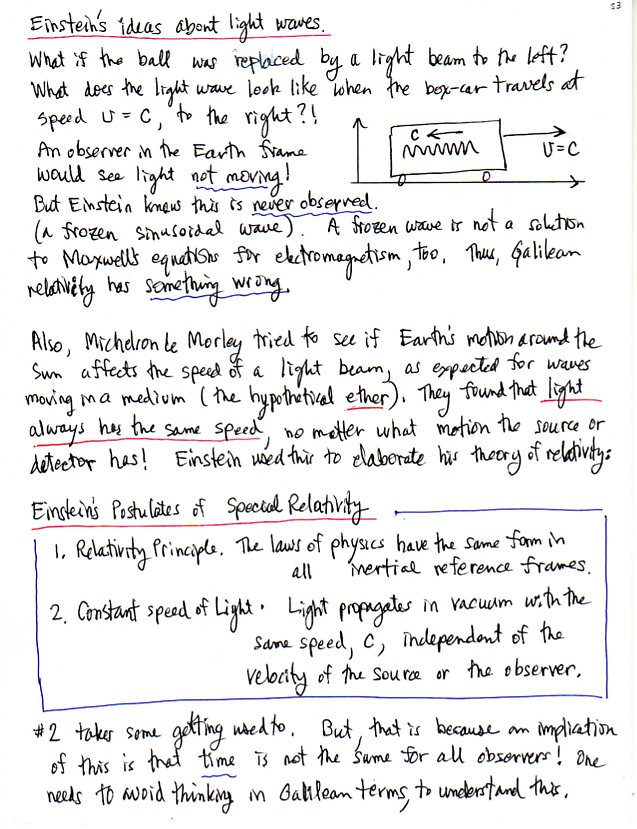 53
Einstein's ideas about light waves.
What if the ball was replaced by a light beam to the left?
What does the light wave look like when the box-car travels at
speed v = c, to the right?!
c
v=c
An observer in the Earth frame
would see light not moving!
But Einstein knew this is never observed.
(a frozen sinusoidal wave). A frozen wave is not a solution
to Maxwell's equations for electromagnetism, too. Thus, Galilean
relativity has something wrong.
Also, Michelson & Morley tried to see if Earth's motion around the
Sun affects the speed of a light beam, as expected for waves
moving in a medium (the hypothetical ether). They found that light
always has the same speed, no matter what motion the source or
detector has! Einstein used this to elaborate his theory of relativity:
Einstein's Postulates of Special Relativity
1. Relativity Principle. The laws of physics have the same form in
all inertial reference frames.
2. Constant speed of Light. Light propagates in vacuum with the
same speed, c, independent of the
velocity of the source or the observer.
#2 takes some getting used to. But, that is because an implication
of this is that time is not the same for all observers! One
needs to avoid thinking in Galilean terms, to understand this.